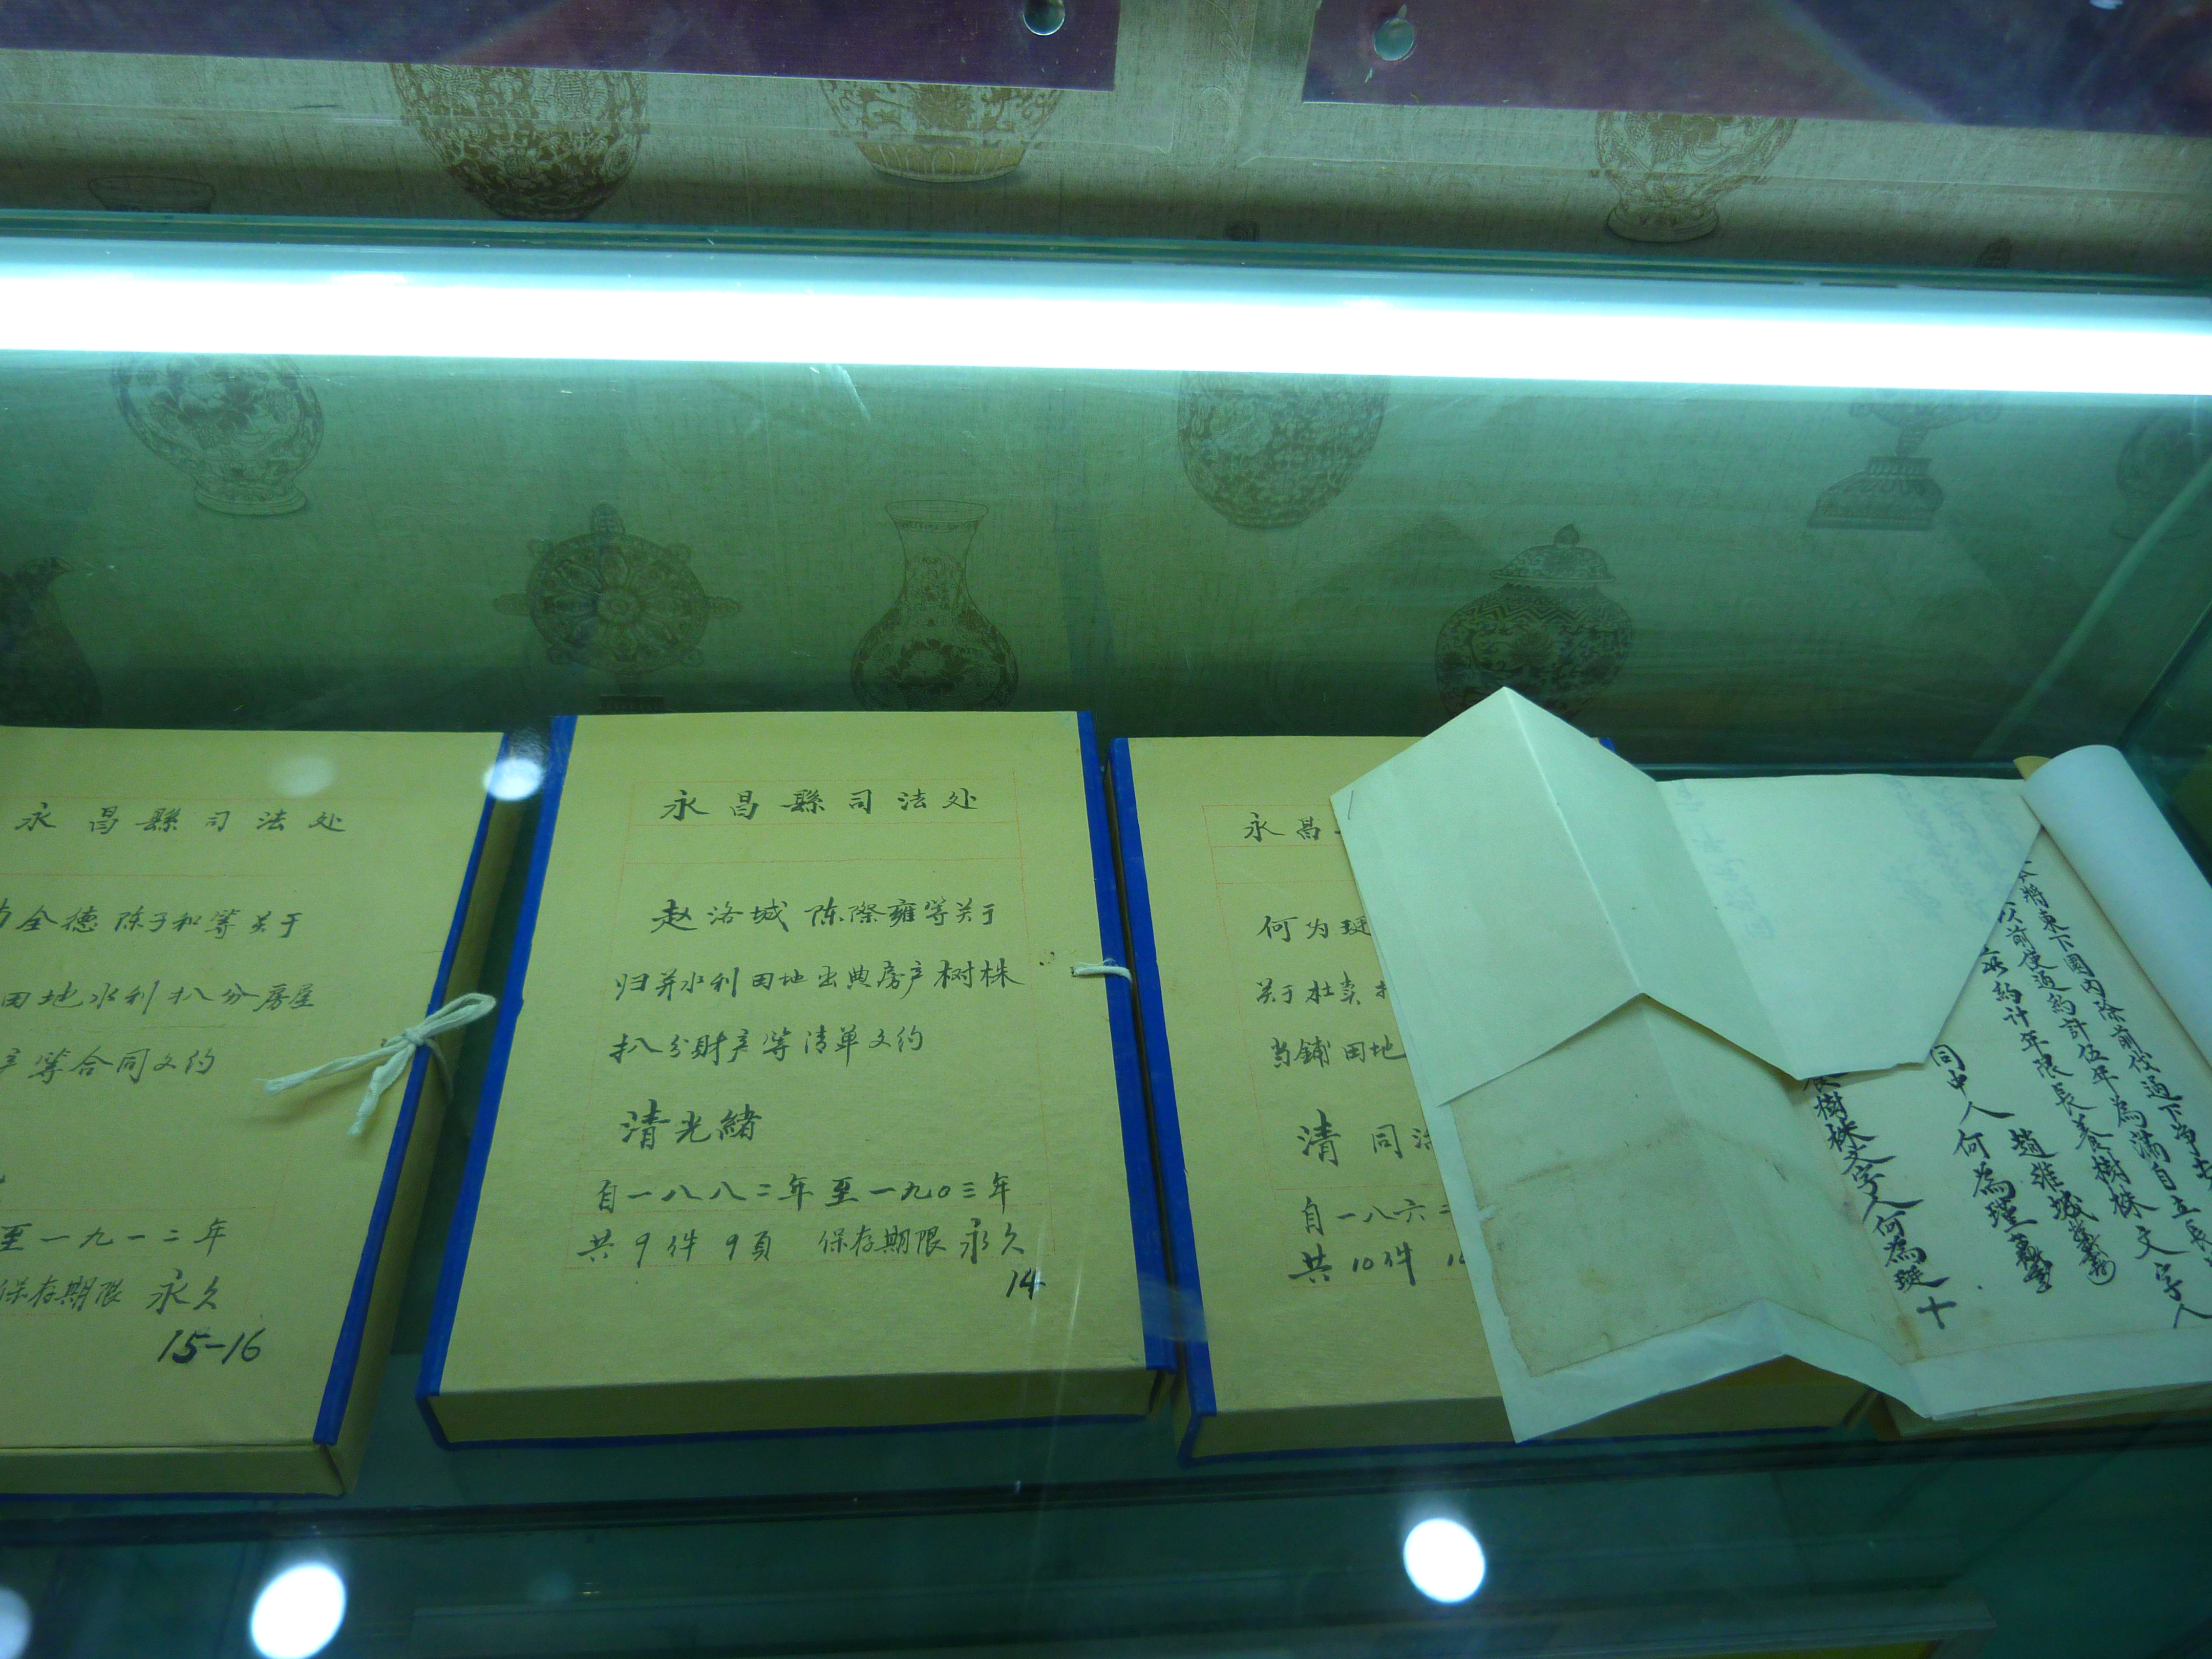 永昌縣司法处
全德 陈子和等关于
田地水利扒分房屋
等合同文约
至一九一二年
保存期限 永久
15-16
永昌縣司法处
赵洛城 陈際雍等关于
归并水利田地出典房产树株
扒分财产等清单文约
清光緒
自一八八二年至一九0三年
共9件 9頁 保存期限 永久
14
永昌
何为珽
关于杜卖
当鋪田地
清 同
自一八六二
共10件
將東下園內除前伐過下净
以前使過約計伍年為滿自立
永約計年限長養樹株文字人
同中人 何為瑾
趙維城
樹株文字人何為珽十